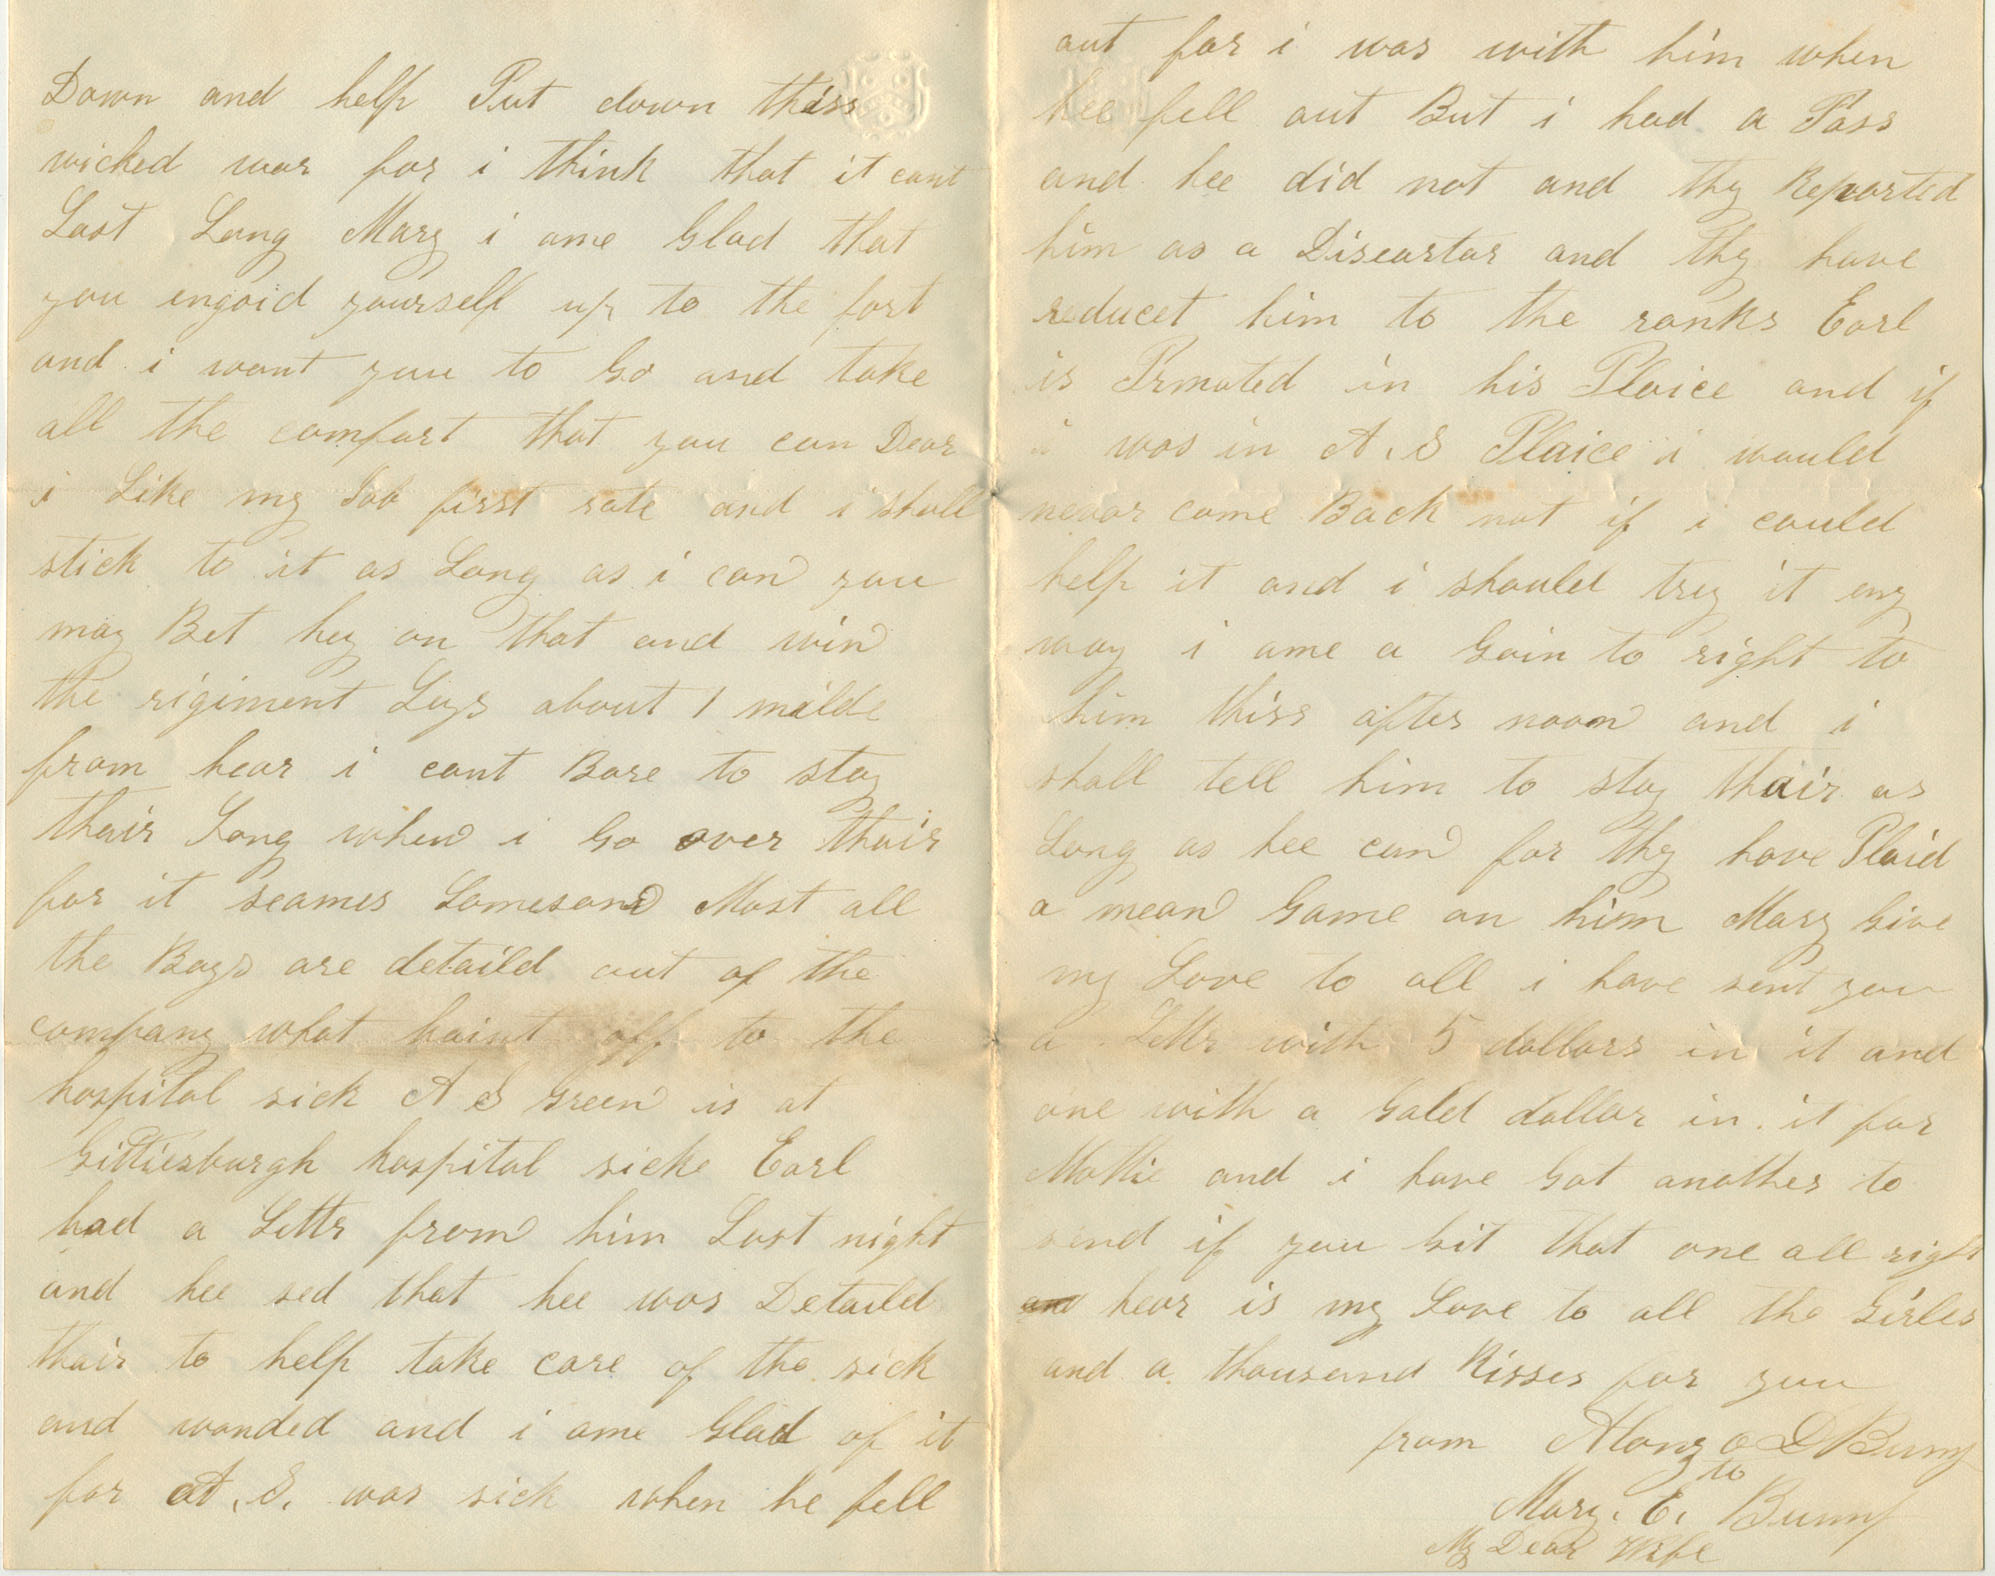 Down and help Put down thiss
wicked war for i think that it cant
Last Long Mary i ame Glad that
you engoid yourself up to the fort
and i want you to Go and take
all the comfort that you can Dear
i Like my Job first rate and i shall
stick to it as Long as i can you
may Bet hey on that and win
the rigiment Lays about 1 milde
from hear i cant Bare to stay
thair Long when i Go over thair
for it seames Lomesom Most all
the Boys are detaild out of the
company what haint off to the
hospital sick A S Green is at
Gittiesburgh hospital sicke Earl
had a Lettr from him Last night
and hee sed that hee was Detaild
thair to help take care of the sick
and wonded and i ame Glad of it
for A. S. was sick when he fell
out for i was with him when
hee fell out But i had a Pass
and hee did not and thy Reported
him as a Diseartar and thy have
reducet him to the ranks Earl
is Prmoted in his Plaice and if
i was in A. S Plaice i would
nevar come Back not if i could
help it and i should trey it eny
way i ame a Goin to right to
him thiss after noon and i
shall tell him to stay thair as
Long as hee can for thy have Plaid
a mean Game on him Mary Give
my Love to all i have sent you
a Lettr with 5 dollars in it and
one with a Gold dollar in it for
Mattie and i have Got another to
send if you Git that one all right
and hear is my Love to all the Girles
and a thousand Kisses for you
from Alonzo D Bump
to
Mary. E. Bump
My Dear Wife